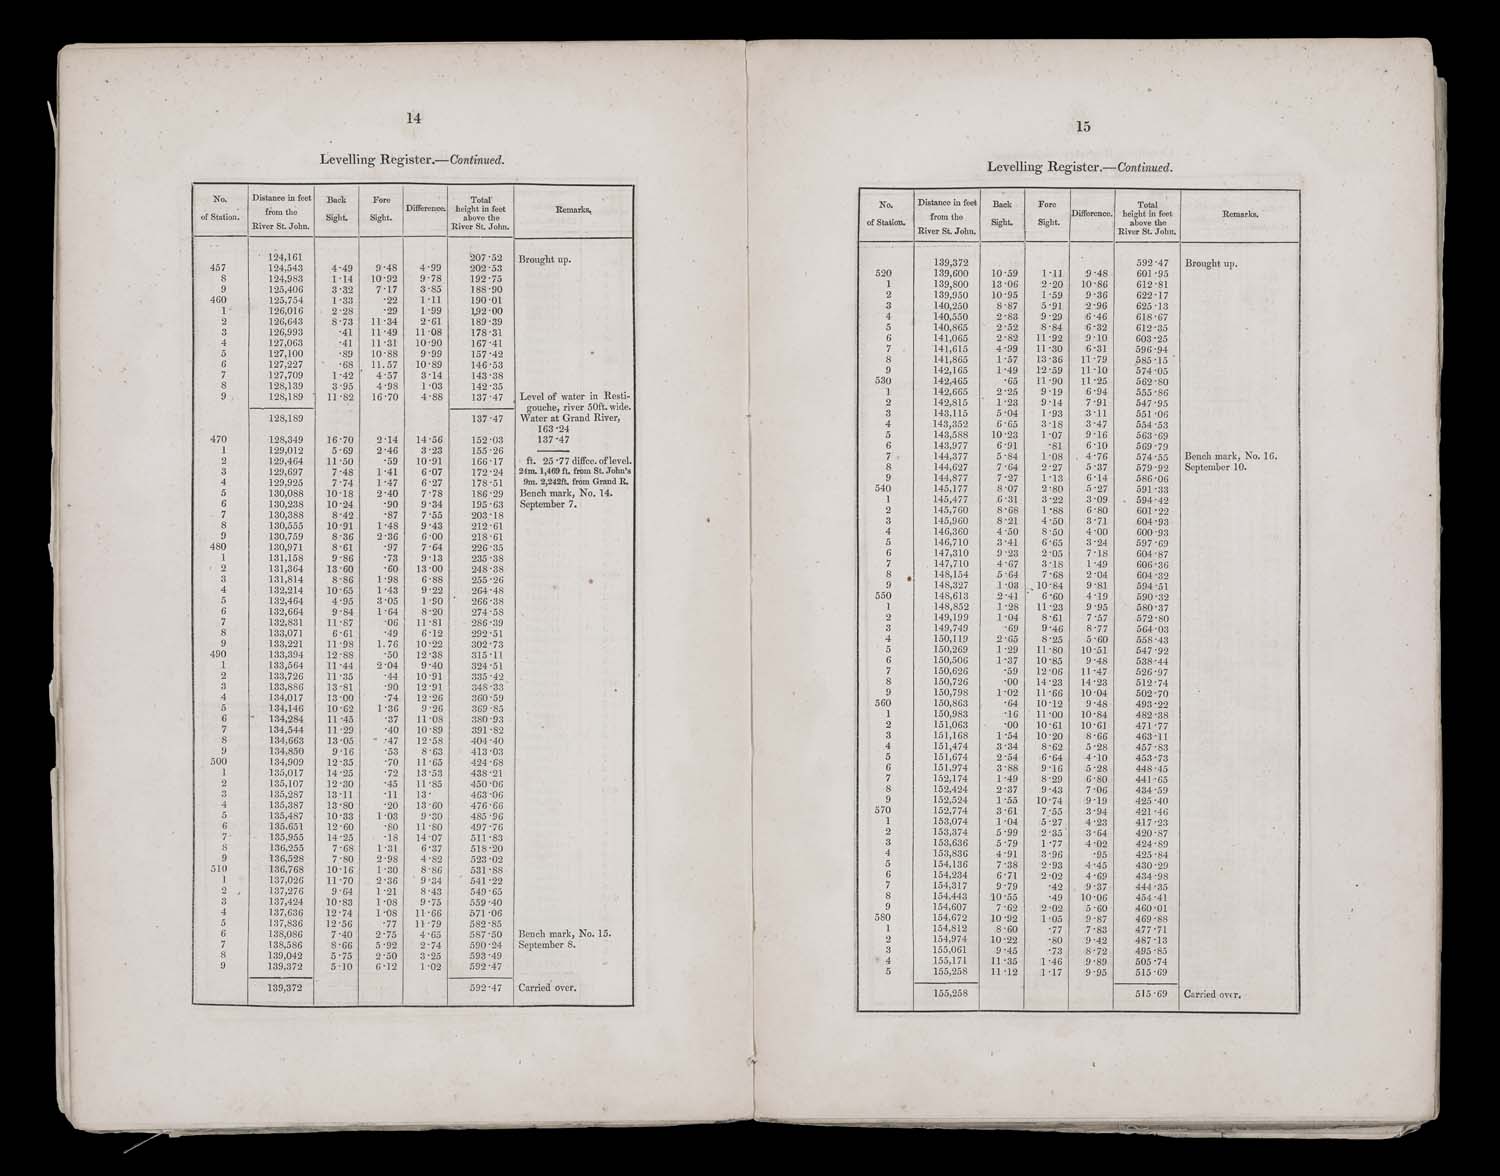 14
Levelling Register.—Continued.
No. of Station. | Distance in feet from the River St. John. | Back Sight. | Fore Sight. | Difference. | Total height in feet above the River St. John. | Remarks.
124,161 207·52 Brought up.
457 124,543 4·49 9·48 4·99 202·53
8 124,983 1·14 10·92 9·78 192·75
9 125,406 3·32 7·17 3·85 188·90
460 125,754 1·33 ·22 1·11 190·01
1 126,016 2·28 ·29 1·99 192·00
2 126,643 8·73 11·34 2·61 189·39
3 126,993 ·41 11·49 11·08 178·31
4 127,063 ·41 11·31 10·90 167·41
5 127,100 ·89 10·88 9·99 157·42
6 127,227 ·68 11.57 10·89 146·53
7 127,709 1·42 4·57 3·14 143·38
8 128,139 3·95 4·98 1·03 142·35
9 128,189 11·82 16·70 4·88 137·47 Level of water in Resti-
gouche, river 50ft. wide.
128,189 137·47 Water at Grand River,
163·24
470 128,349 16·70 2·14 14·56 152·03 137·47
1 129,012 5·69 2·46 3·23 155·26
2 129,464 11·50 ·59 10·91 166·17 ft. 25·77 diffce. of level.
3 129,697 7·48 1·41 6·07 172·24 24m. 1,469 ft. from St. John's
4 129,925 7·74 1·47 6·27 178·51 9m. 2,242ft. from Grand R.
5 130,088 10·18 2·40 7·78 186·29 Bench mark, No. 14.
6 130,238 10·24 ·90 9·34 195·63 September 7.
7 130,388 8·42 ·87 7·55 203·18
8 130,555 10·91 1·48 9·43 212·61
9 130,759 8·36 2·36 6·00 218·61
480 130,971 8·61 ·97 7·64 226·35
1 131,158 9·86 ·73 9·13 235·38
2 131,364 13·60 ·60 13·00 248·38
3 131,814 8·86 1·98 6·88 255·26
4 132,214 10·65 1·43 9·22 264·48
5 132,464 4·95 3·05 1·90 266·38
6 132,664 9·84 1·64 8·20 274·58
7 132,831 11·87 ·06 11·81 286·39
8 133,071 6·61 ·49 6·12 292·51
9 133,221 11·98 1.76 10·22 302·73
490 133,394 12·88 ·50 12·38 315·11
1 133,564 11·44 2·04 9·40 324·51
2 133,726 11·35 ·44 10·91 335·42
3 133,886 13·81 ·90 12·91 348·33
4 134,017 13·00 ·74 12·26 360·59
5 134,146 10·62 1·36 9·26 369·85
6 134,284 11·45 ·37 11·08 380·93
7 134,544 11·29 ·40 10·89 391·82
8 134,663 13·05 ·47 12·58 404·40
9 134,850 9·16 ·53 8·63 413·03
500 134,909 12·35 ·70 11·65 424·68
1 135,017 14·25 ·72 13·53 438·21
2 135,107 12·30 ·45 11·85 450·06
3 135,287 13·11 ·11 13· 463·06
4 135,387 13·80 ·20 13·60 476·66
5 135,487 10·33 1·03 9·30 485·96
6 135,651 12·60 ·80 11·80 497·76
7 135,955 14·25 ·18 14·07 511·83
8 136,255 7·68 1·31 6·37 518·20
9 136,528 7·80 2·98 4·82 523·02
510 136,768 10·16 1·30 8·86 531·88
1 137,026 11·70 2·36 9·34 541·22
2 137,276 9·64 1·21 8·43 549·65
3 137,424 10·83 1·08 9·75 559·40
4 137,636 12·74 1·08 11·66 571·06
5 137,836 12·56 ·77 11·79 582·85
6 138,086 7·40 2·75 4·65 587·50 Bench mark, No. 15.
7 138,586 8·66 5·92 2·74 590·24 September 8.
8 139,042 5·75 2·50 3·25 593·49
9 139,372 5·10 6·12 1·02 592·47
139,372 592·47 Carried over.
15
Levelling Register.—Continued.
No. of Station. | Distance in feet from the River St. John. | Back Sight. | Fore Sight. | Difference. | Total height in feet above the River St. John. | Remarks.
139,372 592·47 Brought up.
520 139,600 10·59 1·11 9·48 601·95
1 139,800 13·06 2·20 10·86 612·81
2 139,950 10·95 1·59 9·36 622·17
3 140,250 8·87 5·91 2·96 625·13
4 140,550 2·83 9·29 6·46 618·67
5 140,865 2·52 8·84 6·32 612·35
6 141,065 2·82 11·92 9·10 603·25
7 141,615 4·99 11·30 6·31 596·94
8 141,865 1·57 13·36 11·79 585·15
9 142,165 1·49 12·59 11·10 574·05
530 142,465 ·65 11·90 11·25 562·80
1 142,665 2·25 9·19 6·94 555·86
2 142,815 1·23 9·14 7·91 547·95
3 143,115 5·04 1·93 3·11 551·06
4 143,352 6·65 3·18 3·47 554·53
5 143,588 10·23 1·07 9·16 563·69
6 143,977 6·91 ·81 6·10 569·79
7 144,377 5·84 1·08 4·76 574·55 Bench mark, No. 16.
8 144,627 7·64 2·27 5·37 579·92 September 10.
9 144,877 7·27 1·13 6·14 586·06
540 145,177 8·07 2·80 5·27 591·33
1 145,477 6·31 3·22 3·09 594·42
2 145,760 8·68 1·88 6·80 601·22
3 145,960 8·21 4·50 3·71 604·93
4 146,360 4·50 8·50 4·00 600·93
5 146,710 3·41 6·65 3·24 597·69
6 147,310 9·23 2·05 7·18 604·87
7 147,710 4·67 3·18 1·49 606·36
8 148,154 5·64 7·68 2·04 604·32
9 148,327 1·03 10·84 9·81 594·51
550 148,613 2·41 6·60 4·19 590·32
1 148,852 1·28 11·23 9·95 580·37
2 149,199 1·04 8·61 7·57 572·80
3 149,749 ·69 9·46 8·77 564·03
4 150,119 2·65 8·25 5·60 558·43
5 150,269 1·29 11·80 10·51 547·92
6 150,506 1·37 10·85 9·48 538·44
7 150,626 ·59 12·06 11·47 526·97
8 150,726 ·00 14·23 14·23 512·74
9 150,798 1·02 11·66 10·04 502·70
560 150,863 ·64 10·12 9·48 493·22
1 150,983 ·16 11·00 10·84 482·38
2 151,063 ·00 10·61 10·61 471·77
3 151,168 1·54 10·20 8·66 463·11
4 151,474 3·34 8·62 5·28 457·83
5 151,674 2·54 6·64 4·10 453·73
6 151,974 3·88 9·16 5·28 448·45
7 152,174 1·49 8·29 6·80 441·65
8 152,424 2·37 9·43 7·06 434·59
9 152,524 1·55 10·74 9·19 425·40
570 152,774 3·61 7·55 3·94 421·46
1 153,074 1·04 5·27 4·23 417·23
2 153,374 5·99 2·35 3·64 420·87
3 153,636 5·79 1·77 4·02 424·89
4 153,836 4·91 3·96 ·95 425·84
5 154,136 7·38 2·93 4·45 430·29
6 154,234 6·71 2·02 4·69 434·98
7 154,317 9·79 ·42 9·37 444·35
8 154,443 10·55 ·49 10·06 454·41
9 154,607 7·62 2·02 5·60 460·01
580 154,672 10·92 1·05 9·87 469·88
1 154,812 8·60 ·77 7·83 477·71
2 154,974 10·22 ·80 9·42 487·13
3 155,061 9·45 ·73 8·72 495·85
4 155,171 11·35 1·46 9·89 505·74
5 155,258 11·12 1·17 9·95 515·69
155,258 515·69 Carried over.